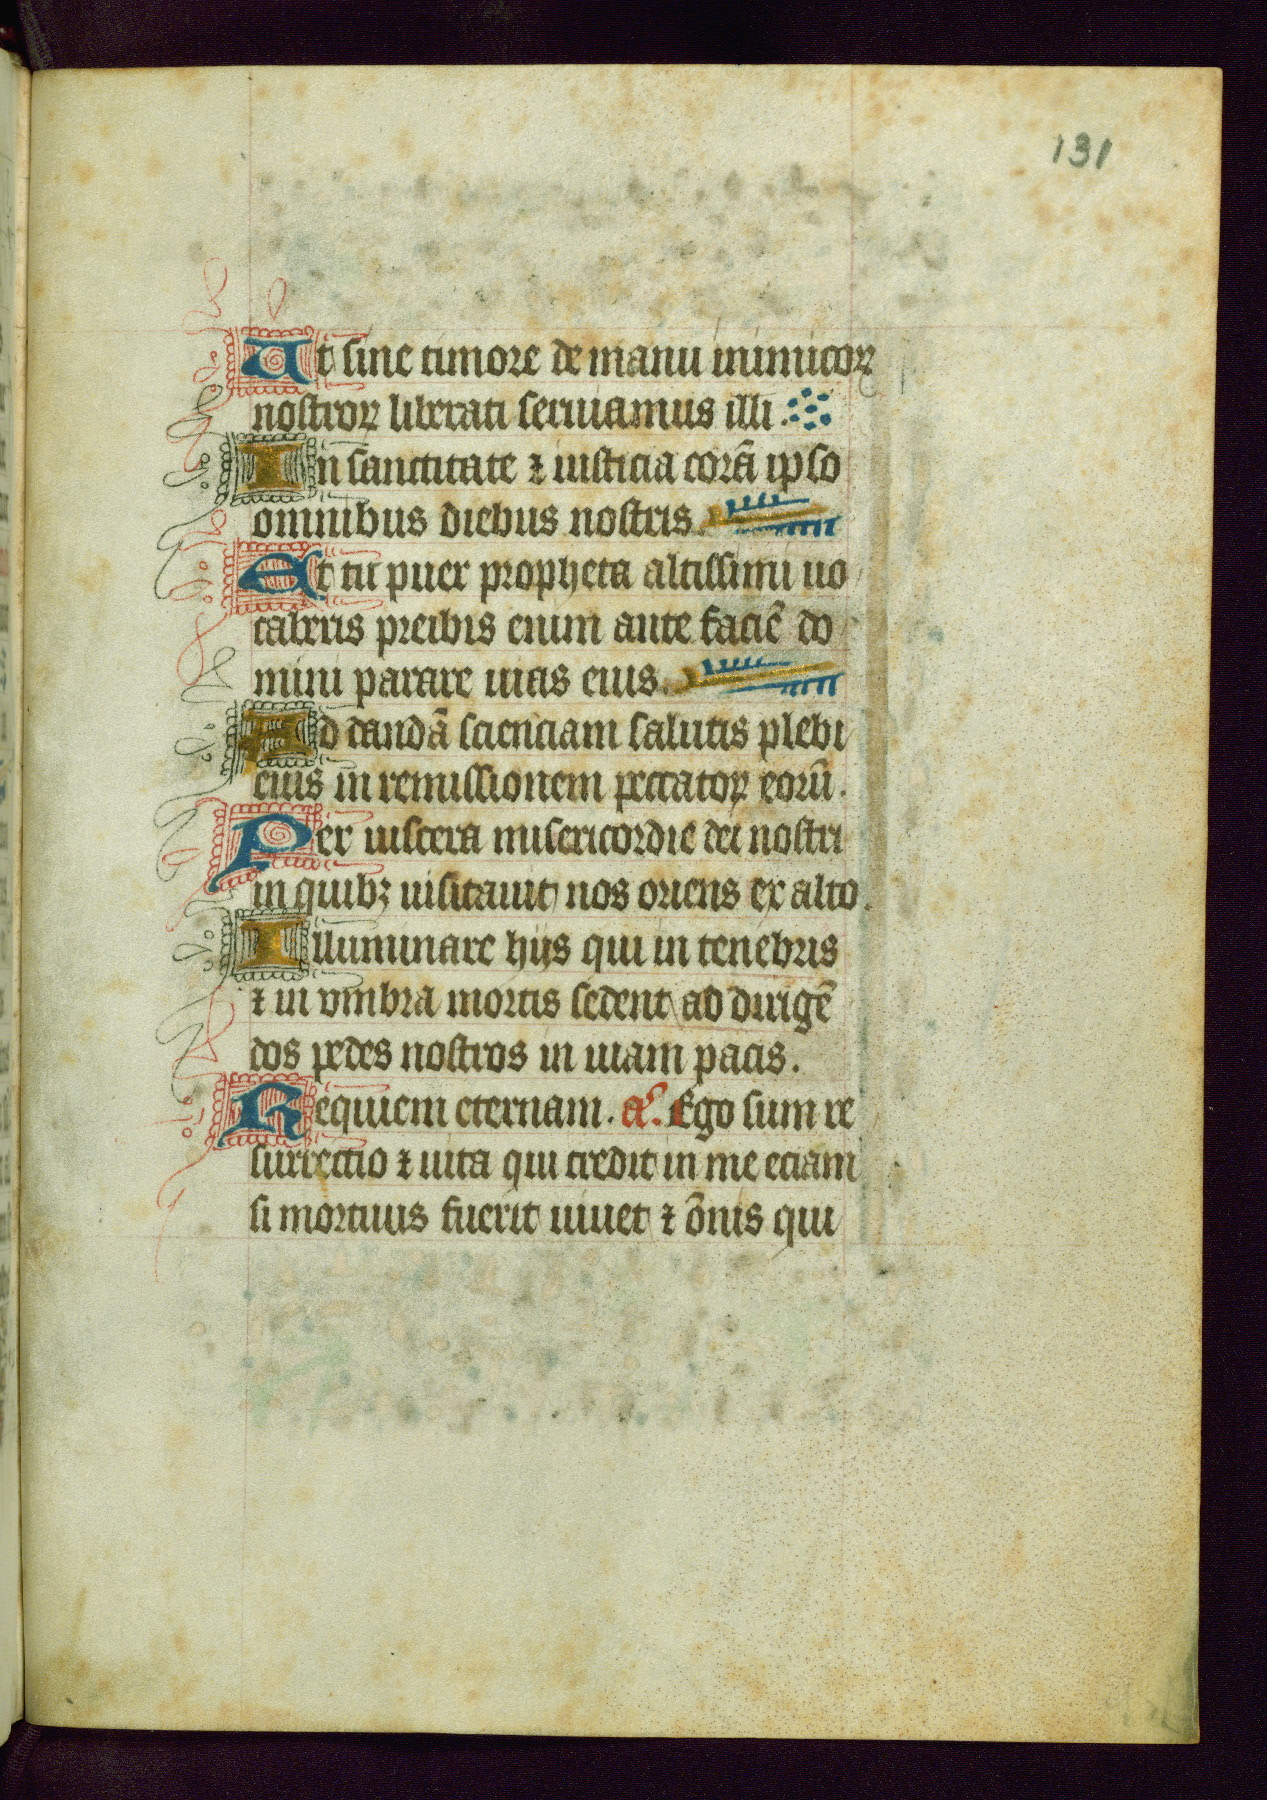 131
Ut sine timore de manu inimicoꝝ
nostroꝝ liberati seruiamus illi.
In sanctitate ⁊ iusticia corā ipso
omnibus diebus nostris.
Et tu puer propheta altissimi uo
caberis preibis enim ante faciē do
mini parare uias eius.
Ad dandā scienciam salutis plebi
eius in remissionem peccatoꝝ eorū.
Per uiscera misericordie dei nostri
in quibꝫ uisitauit nos oriens ex alto.
Illuminare hijs qui in tenebris
⁊ in vmbra mortis sedent ad dirigē
dos pedes nostros in uiam pacis.
Requiem eternam. a͛. Ego sum re
surrectio ⁊ uita qui credit in me eciam
si mortuus fuerit uiuet ⁊ ōnis qui